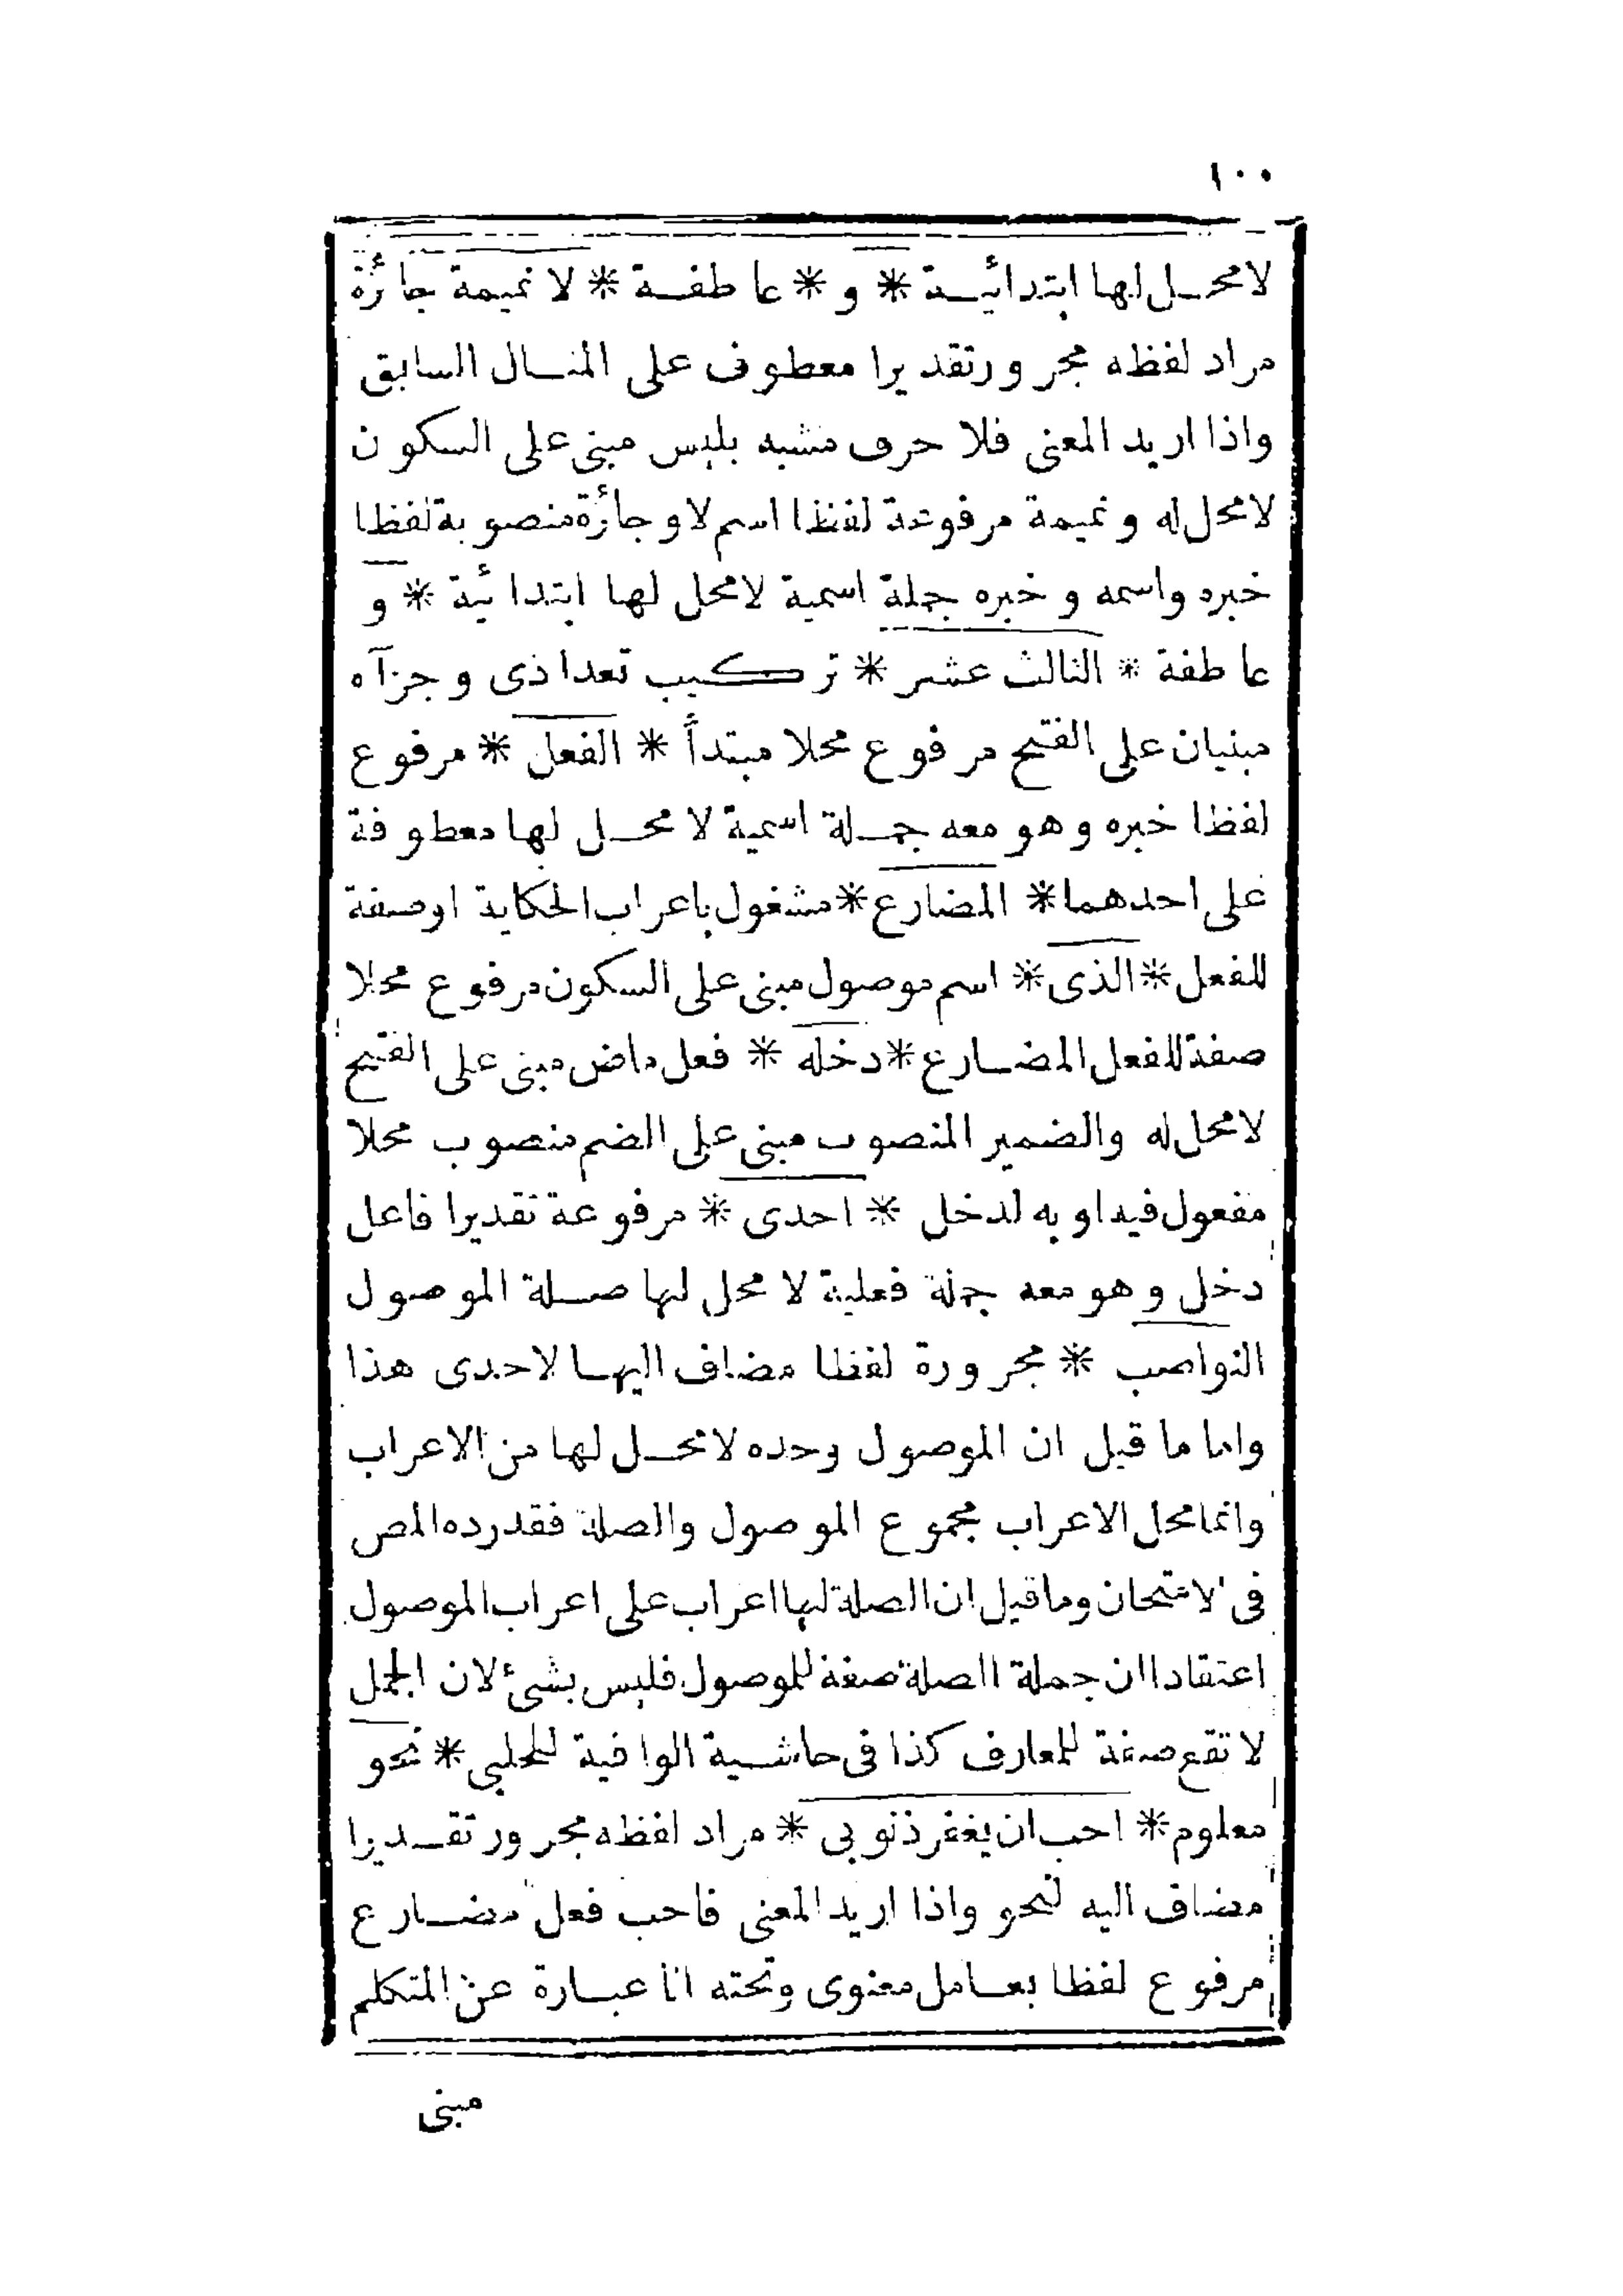 ١٠٠
لا محل لها ابتدائية * و * عاطفة * لا نميمة جائزة
مراد لفظه مجرور تقديرا معطوف على المثال السابق
واذا اريد المعنى فلا حرف مشبه بليس مبنى على السكون
لا محل له ونميمة مرفوعة لفظا اسم لا وجائزة منصوبة لفظا
خبره واسمه وخبره جملة اسمية لا محل لها ابتدائية * و
عاطفة * الثالث عشر * تركيب تعدادى وجزآه
مبنيان على الفتح مرفوع محلا مبتدأ * الفعل * مرفوع
لفظا خبره وهو معه جملة اسمية لا محل لها معطوفة
على احدهما * المضارع * مشغول باعراب الحكاية او صفة
للفعل * الذى * اسم موصول مبنى على السكون مرفوع محلا
صفة للفعل المضارع * دخله * فعل ماض مبنى على الفتح
لا محل له والضمير المنصوب مبنى على الضم منصوب محلا
مفعول فيه او به لدخل * احدى * مرفوعة تقديرا فاعل
دخل وهو معه جملة فعلية لا محل لها صلة الموصول
النواصب * مجرورة لفظا مضاف اليها لاحدى هذا
واما ما قيل ان الموصول وحده لا محل لها من الاعراب
وانما محل الاعراب مجموع الموصول والصلة فقد رده المص
فى الامتحان وما قيل ان الصلة لها اعراب على اعراب الموصول
اعتقادا ان جملة الصلة صفة للموصول فليس بشئ لان الجمل
لا تقع صفة للمعارف كذا فى حاشية الوافية للحلبى * نحو
معلوم * احب ان يغفر ذنوبى * مراد لفظه مجرور تقديرا
مضاف اليه لنحو واذا اريد المعنى فاحب فعل مضارع
مرفوع لفظا بعامل معنوى وتحته انا عبارة عن المتكلم
مبنى